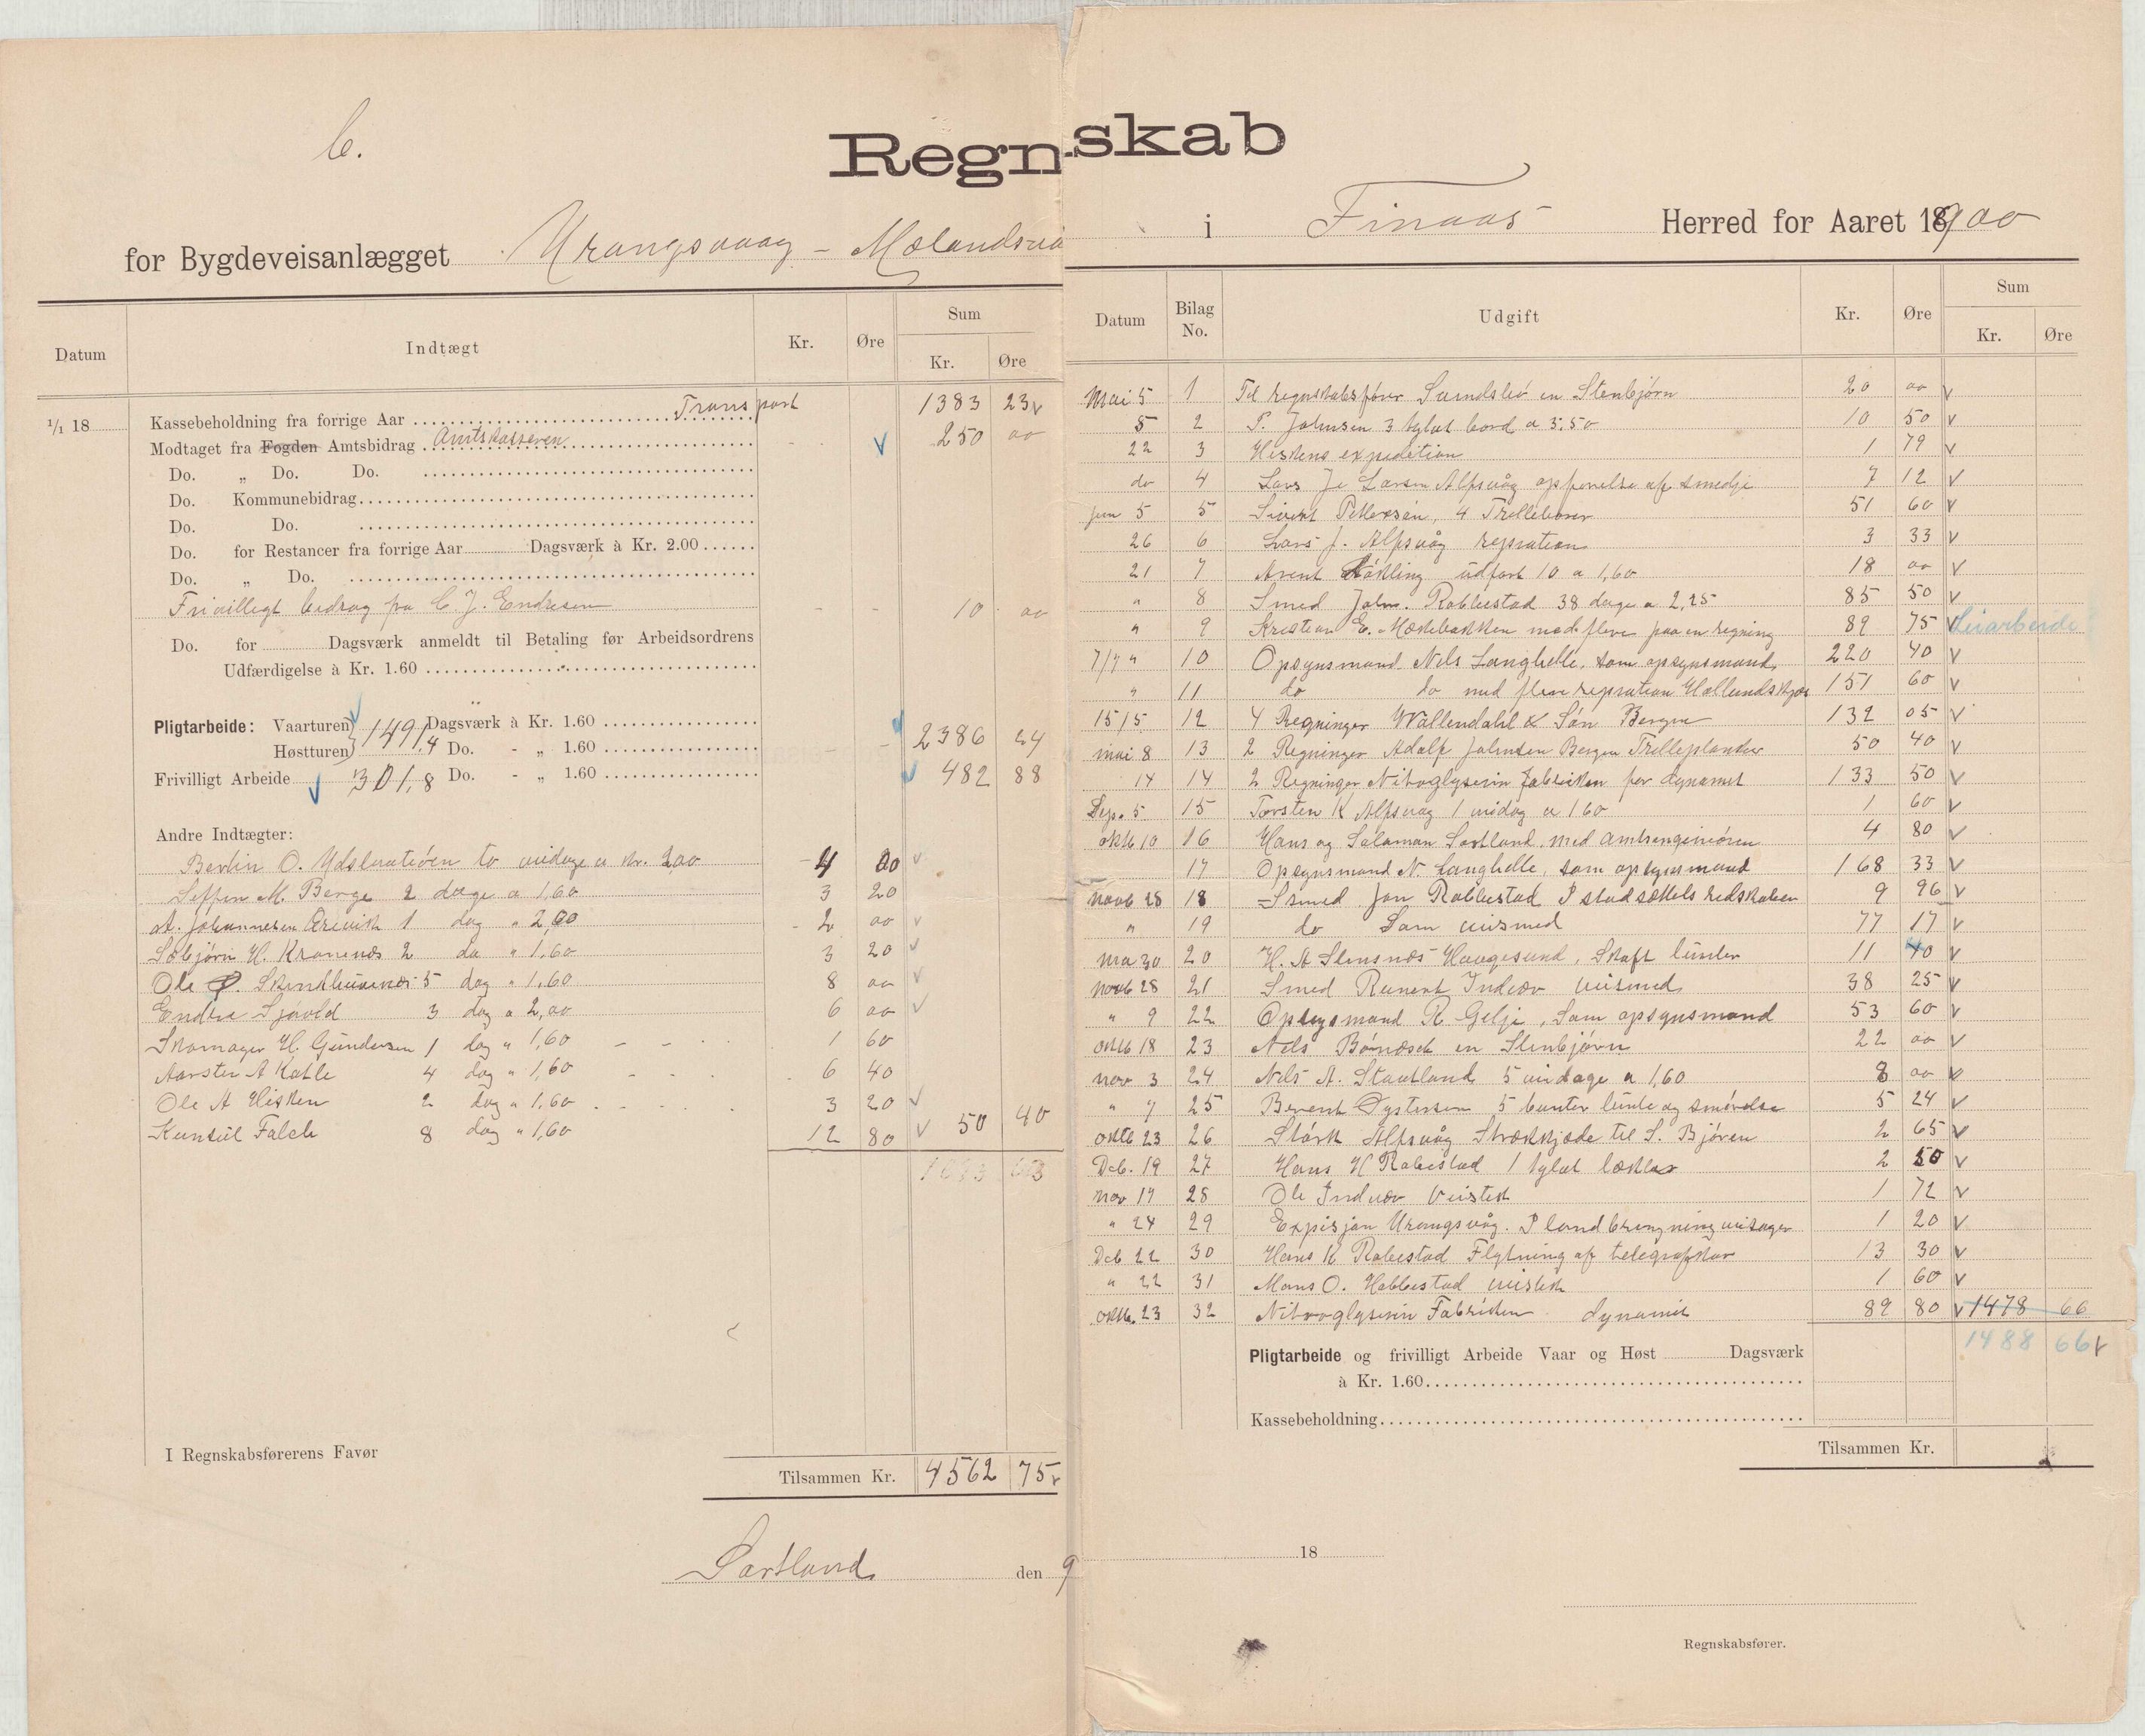 C.
Regnskab
for Bygdeveisanlægget Urangsvaag - Mælandsvå i Finaas Herred for Aaret 1900
Datum Indtægt Kr. Øre Sum Kr. Øre
1/1 18 Kassebeholdning fra forrige Aar Transport 1383 23
Modtaget fra Fogden Amtsbidrag Amtskasseren 250 00
Do. „ Do. Do.
Do. Kommunebidrag
Do. Do.
Do. for Restancer fra forrige Aar Dagsværk à Kr. 2.00
Do. „ Do.
Frivilligt bidrag fra C. J. Endresen 10 00
Do. for Dagsværk anmeldt til Betaling før Arbeidsordrens
Udfærdigelse à Kr. 1.60
Pligtarbeide: Vaarturen 1491,4 Dagsværk à Kr. 1.60 2386 24
Høstturen Do. - „ 1.60
Frivilligt Arbeide 301,8 Do. - „ 1.60 482 88
Andre Indtægter:
O. to veidage a Kr. 2,00 4 00
Berge 2 dage a 1,60 3 20
A. Johannesen 1 dag " 2,00 2 00
H. Kranenæs 2 da " 1,60 3 20
Ole 5 dag " 1,60 8 00
Endre 3 dag a 2,00 6 00
Skomager H. Gundersen 1 dag " 1,60 1 60
A Katle 4 dag " 1,60 6 40
Ole A Hisken 2 dag " 1,60 3 20
Konsul Falch 8 dag " 1,60 12 80 50 40
I Regnskabsførerens Favør
Tilsammen Kr. 4562 75
Sartland den 9
Datum Bilag No. Udgift Kr. Øre Sum Kr. Øre
Mai 5 1 Til regnskabsfører en Stenbjørn 20 00
5 2 P. Johnsen 3 tylvt bord a 3,50 10 50
22 3 Hiskens expedition 1 79
do 4 Lars Larsen Alfsvåg opførelse af smedje 7 12
jun 5 5 Sivert Pettersen, 4 Trillebører 51 60
26 6 Lars J. Alfsvåg repration 3 33
21 7 Arent udført 10 a 1,60 18 00
" 8 Smed Johs. Robbestad 38 dage a 2,25 85 50
" 9 Kristian E. Mækebakken med flere paa en regning 89 75 Leiarbeide
7/7 " 10 Opsynsmand Nels Langhelle, som opsynsmand 220 40
" 11 do do med flere repration 151 60
15/5 12 4 Regninger Wallendahl & Søn Bergen 132 05
mai 8 13 2 Regninger Adolf Johnsen Bergen Trilleplanker 50 40
14 14 2 Regninger Nitroglyserin fabrikken for dynamit 133 50
Sep. 5 15 Torsten K Alfsvag 1 veidag a 1 60 1 60
oktb 10 16 Hans og Salamon Sartland, med amtsingeniøren 4 80
17 Opsynsmand N. Langhelle, som opsynsmand 168 33
novb 28 18 Smed Jon Robbestad I stadsættels redskaber 9 96
" 19 do Som veismed 77 17
ma 30 20 H. A Stensnæs Haugesund, Skaft lunter 11 40
novb 28 21 Smed Indvær veismed 38 25
" 9 22 Opsygsmand R Gelje, Som opsynsmand 53 60
oktb 18 23 Nels en Stenbjørn 22 00
nov 3 24 Nels A. Stautland 5 veidage a 1,60 8 00
" 7 25 Berent 5 bunter lunte og smørelse 5 24
oktb 23 26 Stork Alfsvåg til S. Bjøren 2 65
Deb. 19 27 Hans H Robestad 1 tylvt lækter 2 50
nov 17 28 Ole Indvær Veistek 1 72
" 24 29 Urangsvåg. I landbringning veisager 1 20
Deb 22 30 Hans K Robestad Flytning af telegrafstør 13 30
" 22 31 Mons O. Habbestad veistek 1 60
oktb. 23 32 Nitroglyserin Fabrikken dynamit 89 80 1478 66
1488 66
Pligtarbeide og frivilligt Arbeide Vaar og Høst Dagsværk
à Kr. 1.60
Kassebeholdning
Tilsammen Kr.
18
Regnskabsfører.